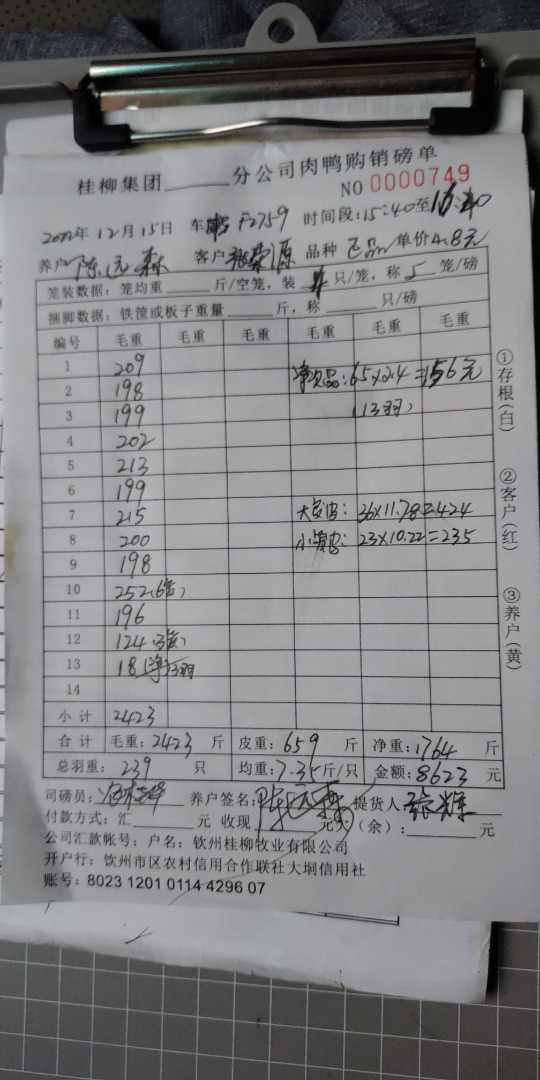 桂柳集团______分公司肉鸭购销磅单
NO 0000749
2022年12月15日 车 F2759 时间段:15:40至16:40
养户 陈 森 客户 张荣源 品种 正品 单价4.8元
笼装数据:笼均重______斤/空笼,装 只/笼,称 5 笼/磅
捆脚数据:铁筐或板子重量______斤,称______只/磅
编号 毛重 毛重 毛重 毛重 毛重 毛重
1 209 净次品:65×2.4=156元
2 198 (13羽)
3 199
4 202
5 213
6 199
7 215 36×11.78=424
8 200 23×10.22=235
9 198
10 252(6笼)
11 196
12 124(3笼)
13 18(净)3羽
14
小计 2423
合计 毛重:2423 斤 皮重:659 斤 净重:1764 斤
总羽重:239 只 均重:7.35斤/只 金额:8623 元
司磅员: 养户签名: 提货人 张辉
付款方式:汇______元 收现 元欠(余):______元
公司汇款帐号:户名:钦州桂柳牧业有限公司
开户行:钦州市区农村信用合作联社大垌信用社
账号:8023 1201 0114 4296 07
①存根(白)
②客户(红)
③养户(黄)